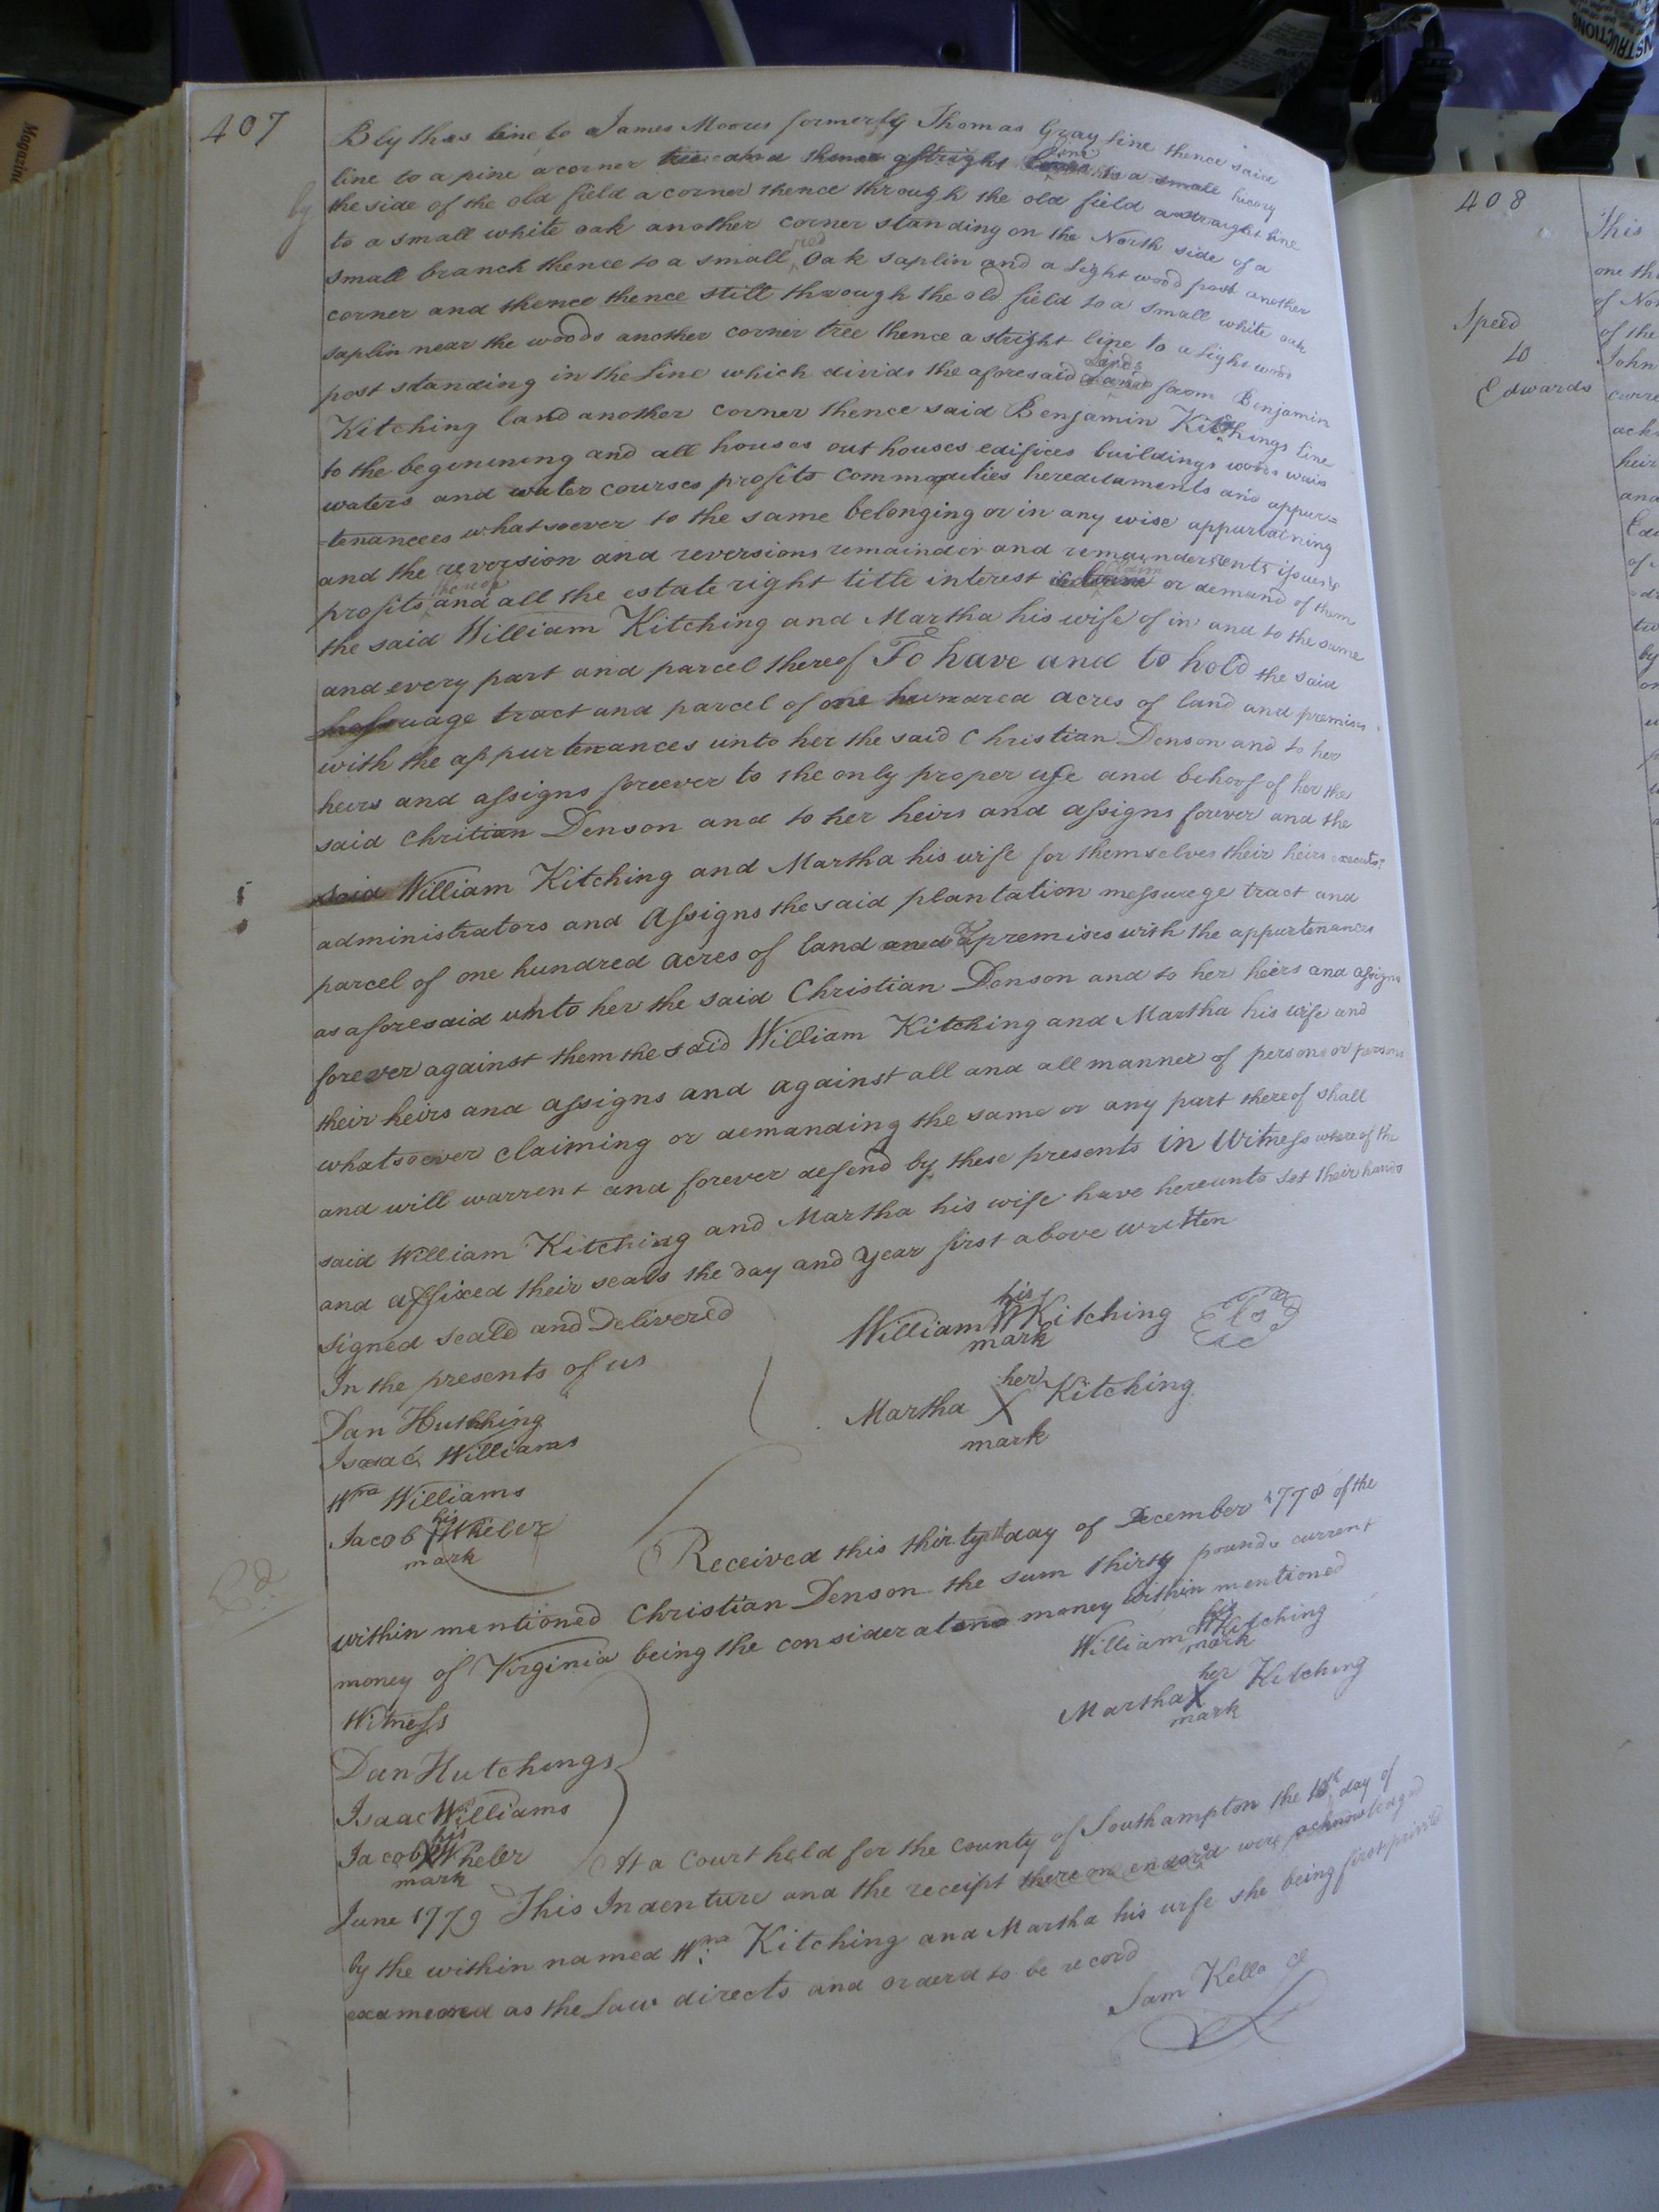 407
Blythes line to James Moores formerly Thomas Gray line thence said
line to a pine a corner tree and thence a straight line to a small hicory
by the side of the old field a corner thence through the old field a straight line
to a small white oak another corner standing on the North side of a
small branch thence to a small red Oak saplin and a light wood post another
corner and thence thence still through the old field to a small white oak
saplin near the woods another corner tree thence a stright line to a light wood
post standing in the line which divids the aforesaid Lands from Benjamin
Kitching land another corner thence said Benjamin Kitchings line
to the beginining and all houses out houses edifices buildings woods wais
waters and water courses profits commodities hereditaments and appur=
=tenancees whatsoever to the same belonging or in any wise appurtaining
and the reversion and reversions remainder and remainders rents issues
profits thereof and all the estate right title interest claim or demand of them
the said William Kitching and Martha his wife of in and to the same
and every part and parcel thereof To have and to hold the said
messuage tract and parcel of one hundred acres of land and premises
with the appurtenances unto her the said Christian Denson and to her
heirs and assigns forever to the only proper use and behoof of her the
said Chritian Denson and to her heirs and assigns forever and the
said William Kitching and Martha his wife for themselves their heirs executs.
administrators and Assigns the said plantation messuage tract and
parcel of one hundred acres of land and premises with the appurtenances
as aforesaid unto her the said Christian Denson and to her heirs and assigns
forever against them the said William Kitching and Martha his wife and
their heirs and assigns and against all and all manner of persons or persons
whatsoever claiming or demanding the same or any part thereof shall
and will warrent and forever defend by these presents in Witness whereof the
said William Kitching and Martha his wife have hereunto set their hands
and affixed their seals the day and year first above written
signed seald and Delivered
In the presents of us
Dan Hutching
Isaac Williams
Wm Williams
Jacob his Wheler
mark
his
William W Kitching
mark
her
Martha X Kitching
mark
Received this thirtyeth day of December 1778 of the
within mentioned Christian Denson the sum thirty pounds current
money of Virginia being the consideration money within mentioned
his
William W Kitching
mark
her
Martha X Kitching
mark
Witness
Dan Hutchings
Isaac Williams
his
Jacob X Wheler
mark
At a Court held for the County of Southampton the 10th day of
June 1779 This Indenture and the receipt thereon endors'd were acknowledged
by the within named Wm Kitching and Martha his wife she being first privily
examened as the Law directs and orderd to be record
Sam Kello C
Ed
408
Speed
to
Edwards
This
one th
of No
of the
John
curre
ack
heir
and
Ed
of
by
Magazin
INSTRUCTIONS